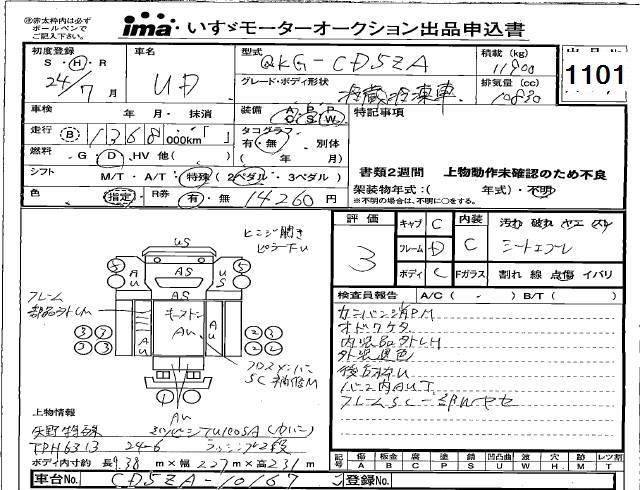 ㊟赤太枠内は必ず
ボールペンで
ご記入下さい。
ima いすゞモーターオークション出品申込書
出品No.
1101
初度登録
S・H・R
24年7月
車名
UD
型式
QKG-CD5ZA
グレード・ボディ形状
冷蔵冷凍車
積載(kg)
11900
排気量(cc)
10830
車検 年 月・抹消
装備 A/C P/S P/W
特記事項
走行 B 1368 000km「 」
タコグラフ
有・無 別体
( 年 月)
燃料 G・D・HV 他( )
シフト M/T・A/T・特殊(2ペダル・3ペダル)
書類2週間 上物動作未確認のため不良
架装物年式:( 年式)・不明
※不明の場合は、不明に○をする。
色 指定 R券 有・無 14260円
評価
3
キャブ C
内装
C
フレーム D
ボディ C
Fガラス
汚れ 破れ ヤエ スレ
シートエプレ
割れ 線 点傷 イバリ
ヒンジ開き
ピラードU
US
AS
AU
US
AS
フレーム
部品ヲトLM
キーストン
AU
AU
AU
クロスメンバー
SC 補修M
AU
検査員報告 A/C( - ) B/T( )
カンバン消PM
オドワケタ
内装品ヲトLM
外装退色
後方枠U
バン内AUT
フレームSC一部Wヤセ
上物情報
矢野特殊
TPH6313 24-6
ラッシング2段
ボディ内寸約 長9.38m×幅2.27m×高2.31m
車台No. CD5ZA-10167
登録No.
記号 傷 板金 腐 塗 錆 凹凸曲 波 穴 跡 レツ割
A B C P S U W H M T